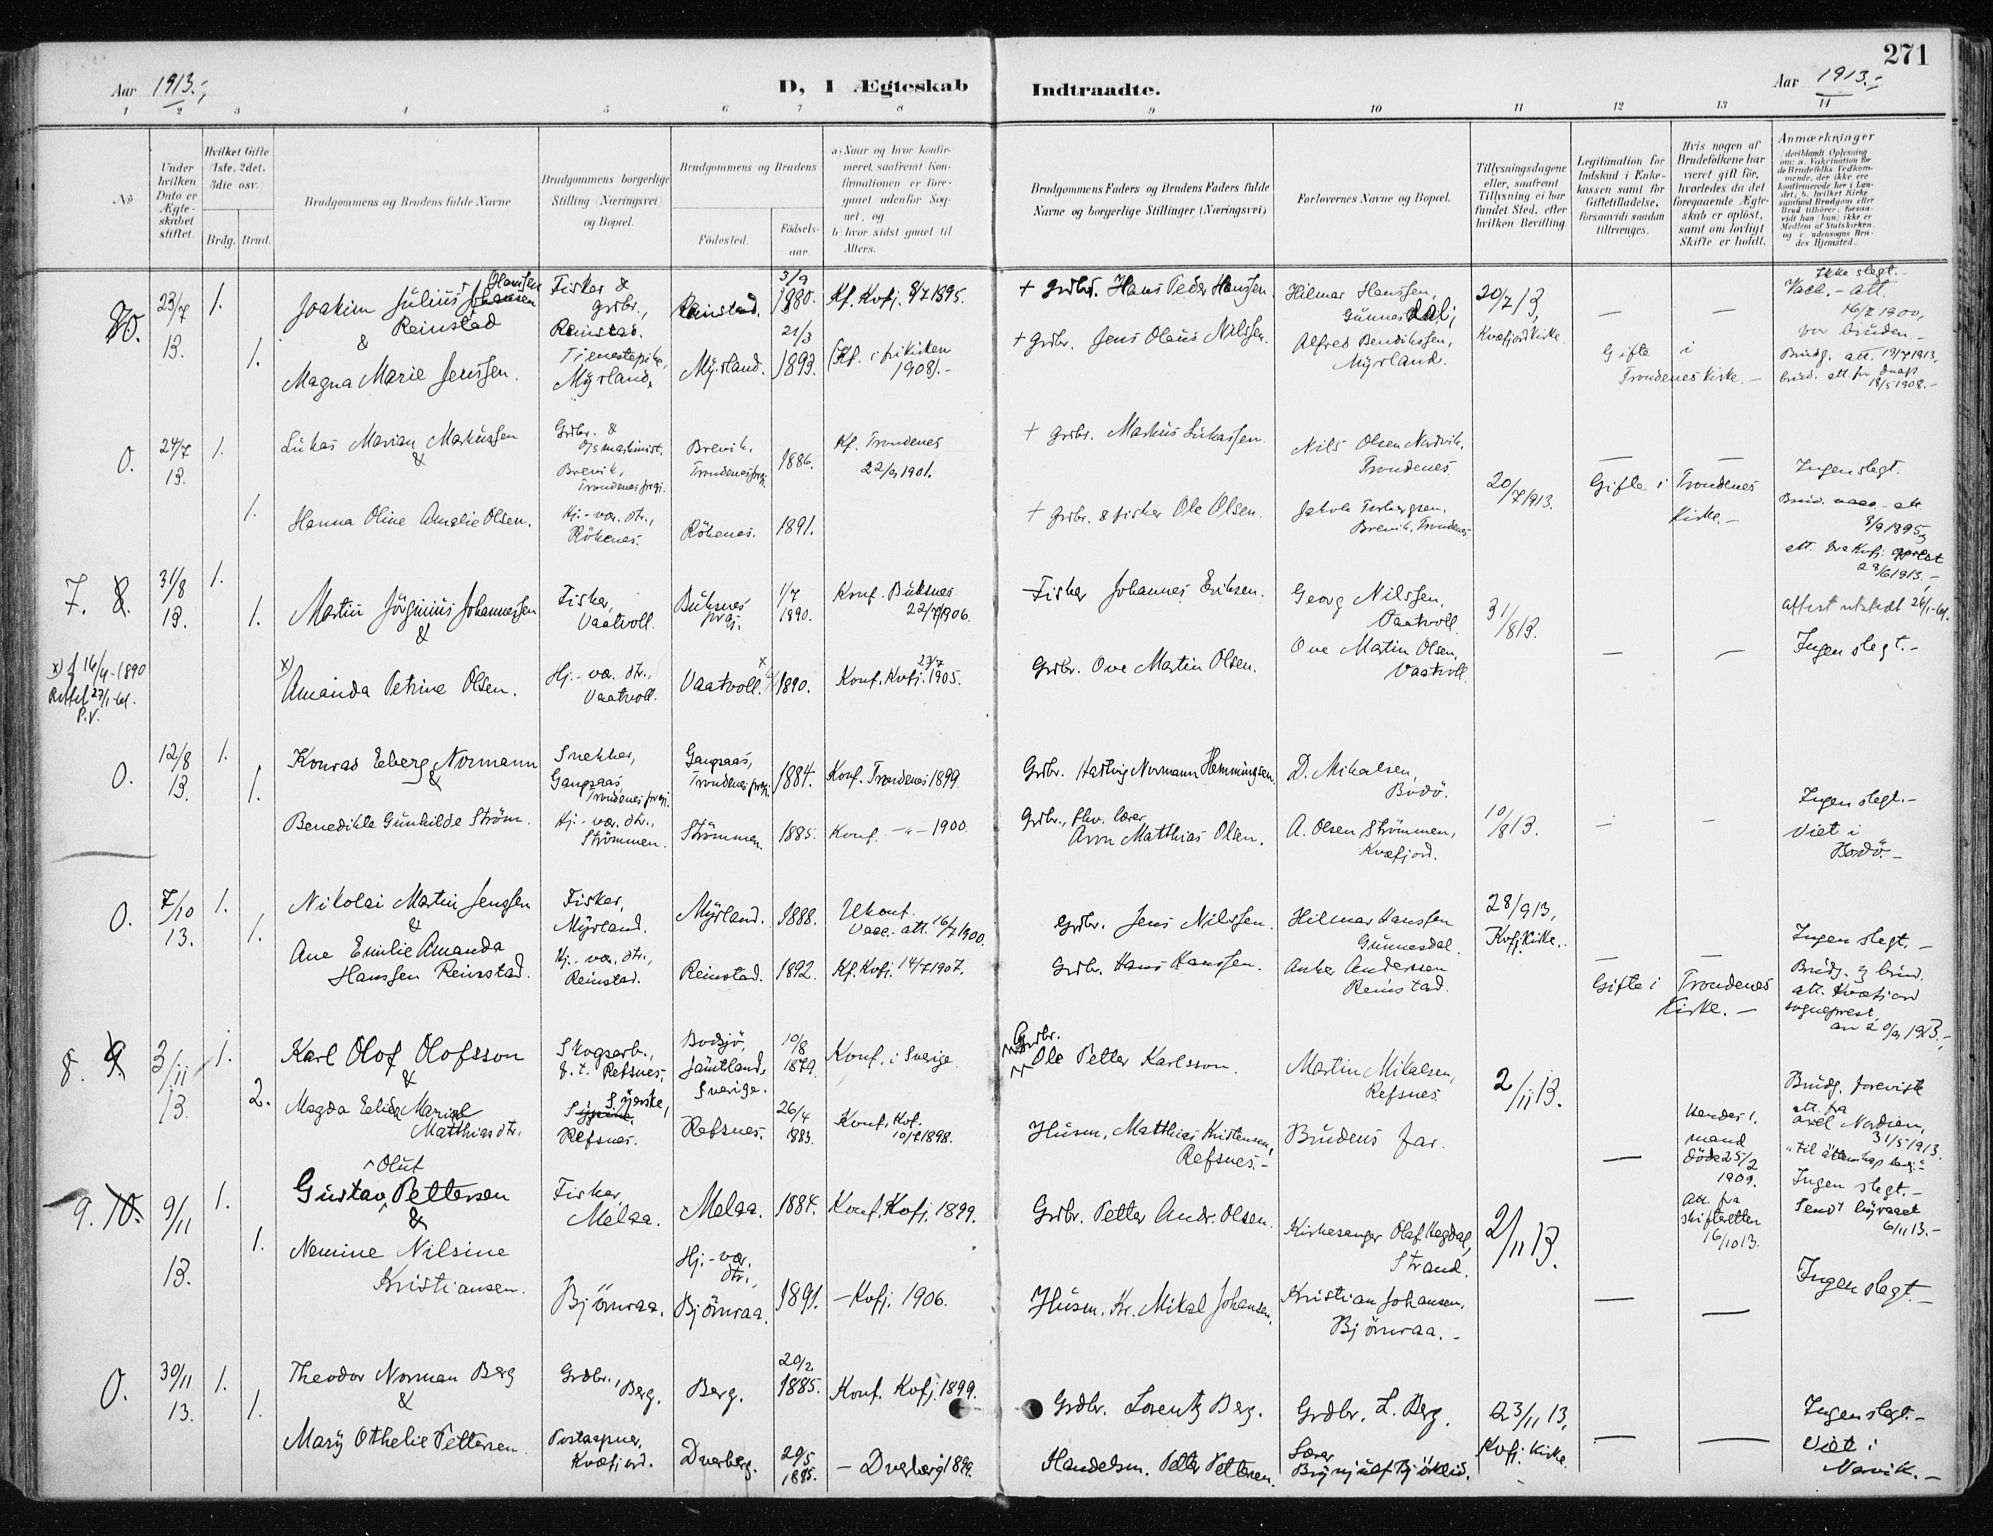 271
Aar 1913.-,
D, 1 Ægteskab
Indtraadte.
Aar 1913.-
1 2 3 4 5 6 7 8 9 10 11 12 13 14
No
Under hvilken Dato er Ægteskabet stiftet.
Hvilket Gifte 1ste, 2det, 3die osv.
Brdg. Brud.
Brudgommens og Brudens fulde Navne
Brudgommens borgerlige Stilling (Næringsvei) og Bopæl.
Brudgommens og Brudens
Fødested.
Fødselsaar.
a) Naar og hvor konfirmeret, saafremt Konfirmationen er foregaaet udenfor Sognet, og
b) hvor sidst gaaet til Alters.
Brudgommens Faders og Brudens Faders fulde Navne og borgerlige Stillinger (Næringsvei)
Forlovernes Navne og Bopæl.
Tillysningsdagene eller, saafremt Tillysning ei har fundet Sted, efter hvilken Bevilling.
Legitimation for Indskud i Enkekassen samt for Giftetilladelse, forsaavidt saadan tiltrænges.
Hvis nogen af Brudefolkene har været gift før, hvorledes da det foregaaende Ægteskab er opløst, samt om lovligt Skifte er holdt.
Anmærkninger
23/7 13.
1.
Joakim Julius Hansen
Reinstad
&
Fisker & grdbr.,
Reinstad.
Reinstad.
3/9 1880.
Kf. Kvfj. 8/7 1895.
+ grdbr. Hans Peder Hansen.
Hilmar Hanssen,
Gunnesdal,
20/7 13,
Kvæfjord Kirke.
Ikke slegt.-
Vacc.- att.
16/7 1900,
for bruden.
1.
Magna Marie Jenssen.
Tjenestepike,
Myrland.
Myrland.
21/3 1893.
(Kf. i frikirken 1908).-
+ grdbr. Jens Olaus Nilssen.
Alfred Bendiksen,
Myrland.
Gifte i
Trondenes Kirke.-
Brudg. att. 19/7 1913,
18/5 1908.-
0.
24/7 13.
1.
Lukas Marian Markussen
&
Grdbr. &
D/S maskinist.
Brevik,
Trondenes prgj.
Brevik,
Trondenes prgj.
1886.
Kf. Trondenes
22/9 1901.
+ grdbr. Markus Lukassen.
Nils Olsen Nordvik,
Trondenes.
20/7 1913.
Gifte i Trondenes
Kirke.-
Ingen slegt.
1.
Hanna Oline Amalie Olsen.
Hj.-vær. dtr.,
Röhenes.
Röhenes.
1891.
+ grdbr. & fisker Ole Olsen.
Jakob Torbergsen,
Brevik, Trondenes
Brud. vacc.- att.
9/9 1895,
att. fra Kvfj. sprest
28/6 1913.-
7. 8.
31/8 13.
1.
Martin Jörginius Johannessen
&
Fisker,
Vaatvoll.
Buksnes
prgj.
1/7 1890.
Konf. Buksnes
22/7 1906.
Fisker Johannes Eriksen.
Georg Nilssen,
Vaatvoll.
31/8 13.
Attest utstedt 26/1-61.
Ingen slegt.-
x) f 16/4-1890
Rettet 27/1-61.
P.V.
1.
x)
Amanda Petrine Olsen.
Hj.-vær. dtr.,
Vaatvoll.
Vaatvoll.
x 1890.
Konf. Kvfj. 23/7 1905.
Grdbr. Ove Martin Olsen.
Ove Martin Olsen,
Vaatvoll.
0.
12/8 13.
1.
Konrad Edberg Normann
&
Snekker,
Gangsaas,
Trondenes prgj.
Gangsaas,
Trondenes prgj.
1884.
Konf. Trondenes 1899.
Grdbr. Hartvig Normann Hemmingsen.
D. Mikalsen,
Bodö.
10/8 13.
Ingen slegt.-
Viet i
Bodö.-
1.
Benedikte Gunhilde Ström.
Hj.-vær. dtr.,
Strömmen.
Strömmen.
1885.
Konf. -"- 1900.
Grdbr., fhv. lærer
Aron Matthias Olsen.
A. Olsen Strömmen,
Kvæfjord.
0.
7/10 13.
1.
Nikolai Martin Jenssen
&
Fisker,
Myrland.
Myrland.
1888.
Ukonf.
Vacc.- att. 16/7 1900.
Grdbr. Jens Nilssen.
Hilmar Hanssen
Gunnesdal.
28/9 13,
Kvfj. Kirke.
Ingen slegt.-
1.
Ane Emilie Amanda
Hanssen Reinstad.
Hj.-vær. dtr.,
Reinstad.
Reinstad.
1892.
Kf. Kvfj. 14/7 1907.
Grdbr. Hans Hanssen.
Anker Anderssen
Reinstad.
Gifte i Trondenes
Kirke.-
Brudg. og brud.
att. Kvæfjord
sogneprest
8. 9.
3/11 13.
1.
Karl Olof Olofsson
&
Skogsarb.,
p. t. Refsnes.
Bodsjö,
Jämtland,
Sverige.
10/8 1879.
Konf. i Sverige.
Grdbr.
Ole Petter Karlsson.
Martin Mikalsen,
Refsnes.
2/11 13.
Brudg. foreviste
att. fra
Axel Nordien,
31/5 1913.
2.
Magda
Matthiasdtr.
Syerske,
Refsnes.
Refsnes.
26/4 1883.
Konf. Kvf.
10/7 1898.
Husm. Matthias Kristensen,
Refsnes.-
Brudens far.
Hendes 1.
mand
döde 25/2
1909.
Att. fra
skifteretten
16/10 13.
Ingen slegt.-
Sendt
6/11 13.-
9. 10.
9/11 13.
1.
Olut
Gustav Pettersen
&
Fisker,
Melaa.
Melaa.
1884.
Konf. Kvfj. 1899.
Grdbr. Petter Andr. Olsen.
Kirkesanger Olaf Hegdal,
Strand.
2/11 13.
1.
Nemine Nilsine
Kristiansen.
Björnraa.
Hj.-vær. dtr.,
Björnraa.
1891.
- Kvfj. 1906.
Husm. Kr. Mikal Johansen.
Kristian Johansen,
Björnraa.-
Ingen slegt.-
0.
30/11 13.
1.
Theodor Norman Berg
&
Grdbr.,
Berg.
Berg.
20/2 1885.
Konf. Kvfj. 1899.
Grdbr. Lorentz Berg.
Grdbr. L. Berg.
23/11 13,
Kvfj. Kirke.
Ingen slegt.-
Viet i
Narvik.-
1.
Mary Othelie Pettersen.
Postaapner,
Kvæfjord.
Dverberg.
29/5 1885.
- Dverberg 1899.
Handelsm. Petter Pettersen.
Lærer
Brynjulf Bjöklid.